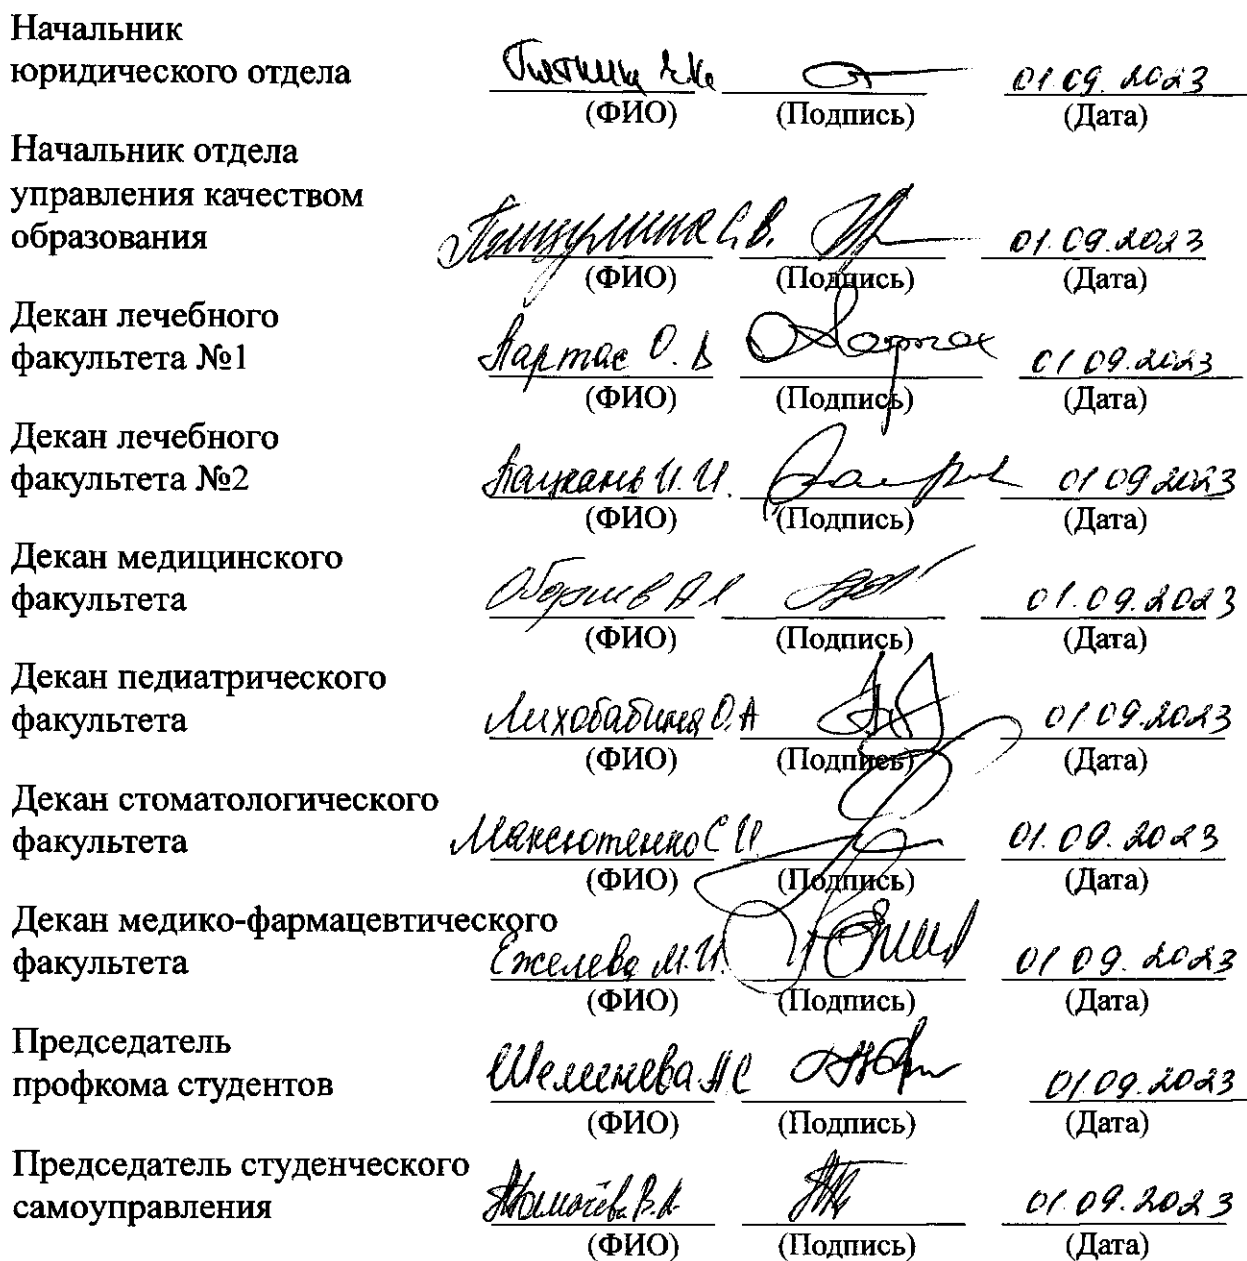 Начальник
юридического отдела 01.09.2023
(ФИО) (Подпись) (Дата)
Начальник отдела
управления качеством
образования С.В. 01.09.2023
(ФИО) (Подпись) (Дата)
Декан лечебного
факультета №1 Партас О. В 01.09.2023
(ФИО) (Подпись) (Дата)
Декан лечебного
факультета №2 Пацкань И.И. 01 09 2023
(ФИО) (Подпись) (Дата)
Декан медицинского
факультета 01.09.2023
(ФИО) (Подпись) (Дата)
Декан педиатрического
факультета Лихобабина О.А 01 09.2023
(ФИО) (Подпись) (Дата)
Декан стоматологического
факультета Максютенко С И 01.09.2023
(ФИО) (Подпись) (Дата)
Декан медико-фармацевтического
факультета Ежелева М.И. 01 09.2023
(ФИО) (Подпись) (Дата)
Председатель
профкома студентов 01.09.2023
(ФИО) (Подпись) (Дата)
Председатель студенческого
самоуправления 01.09.2023
(ФИО) (Подпись) (Дата)